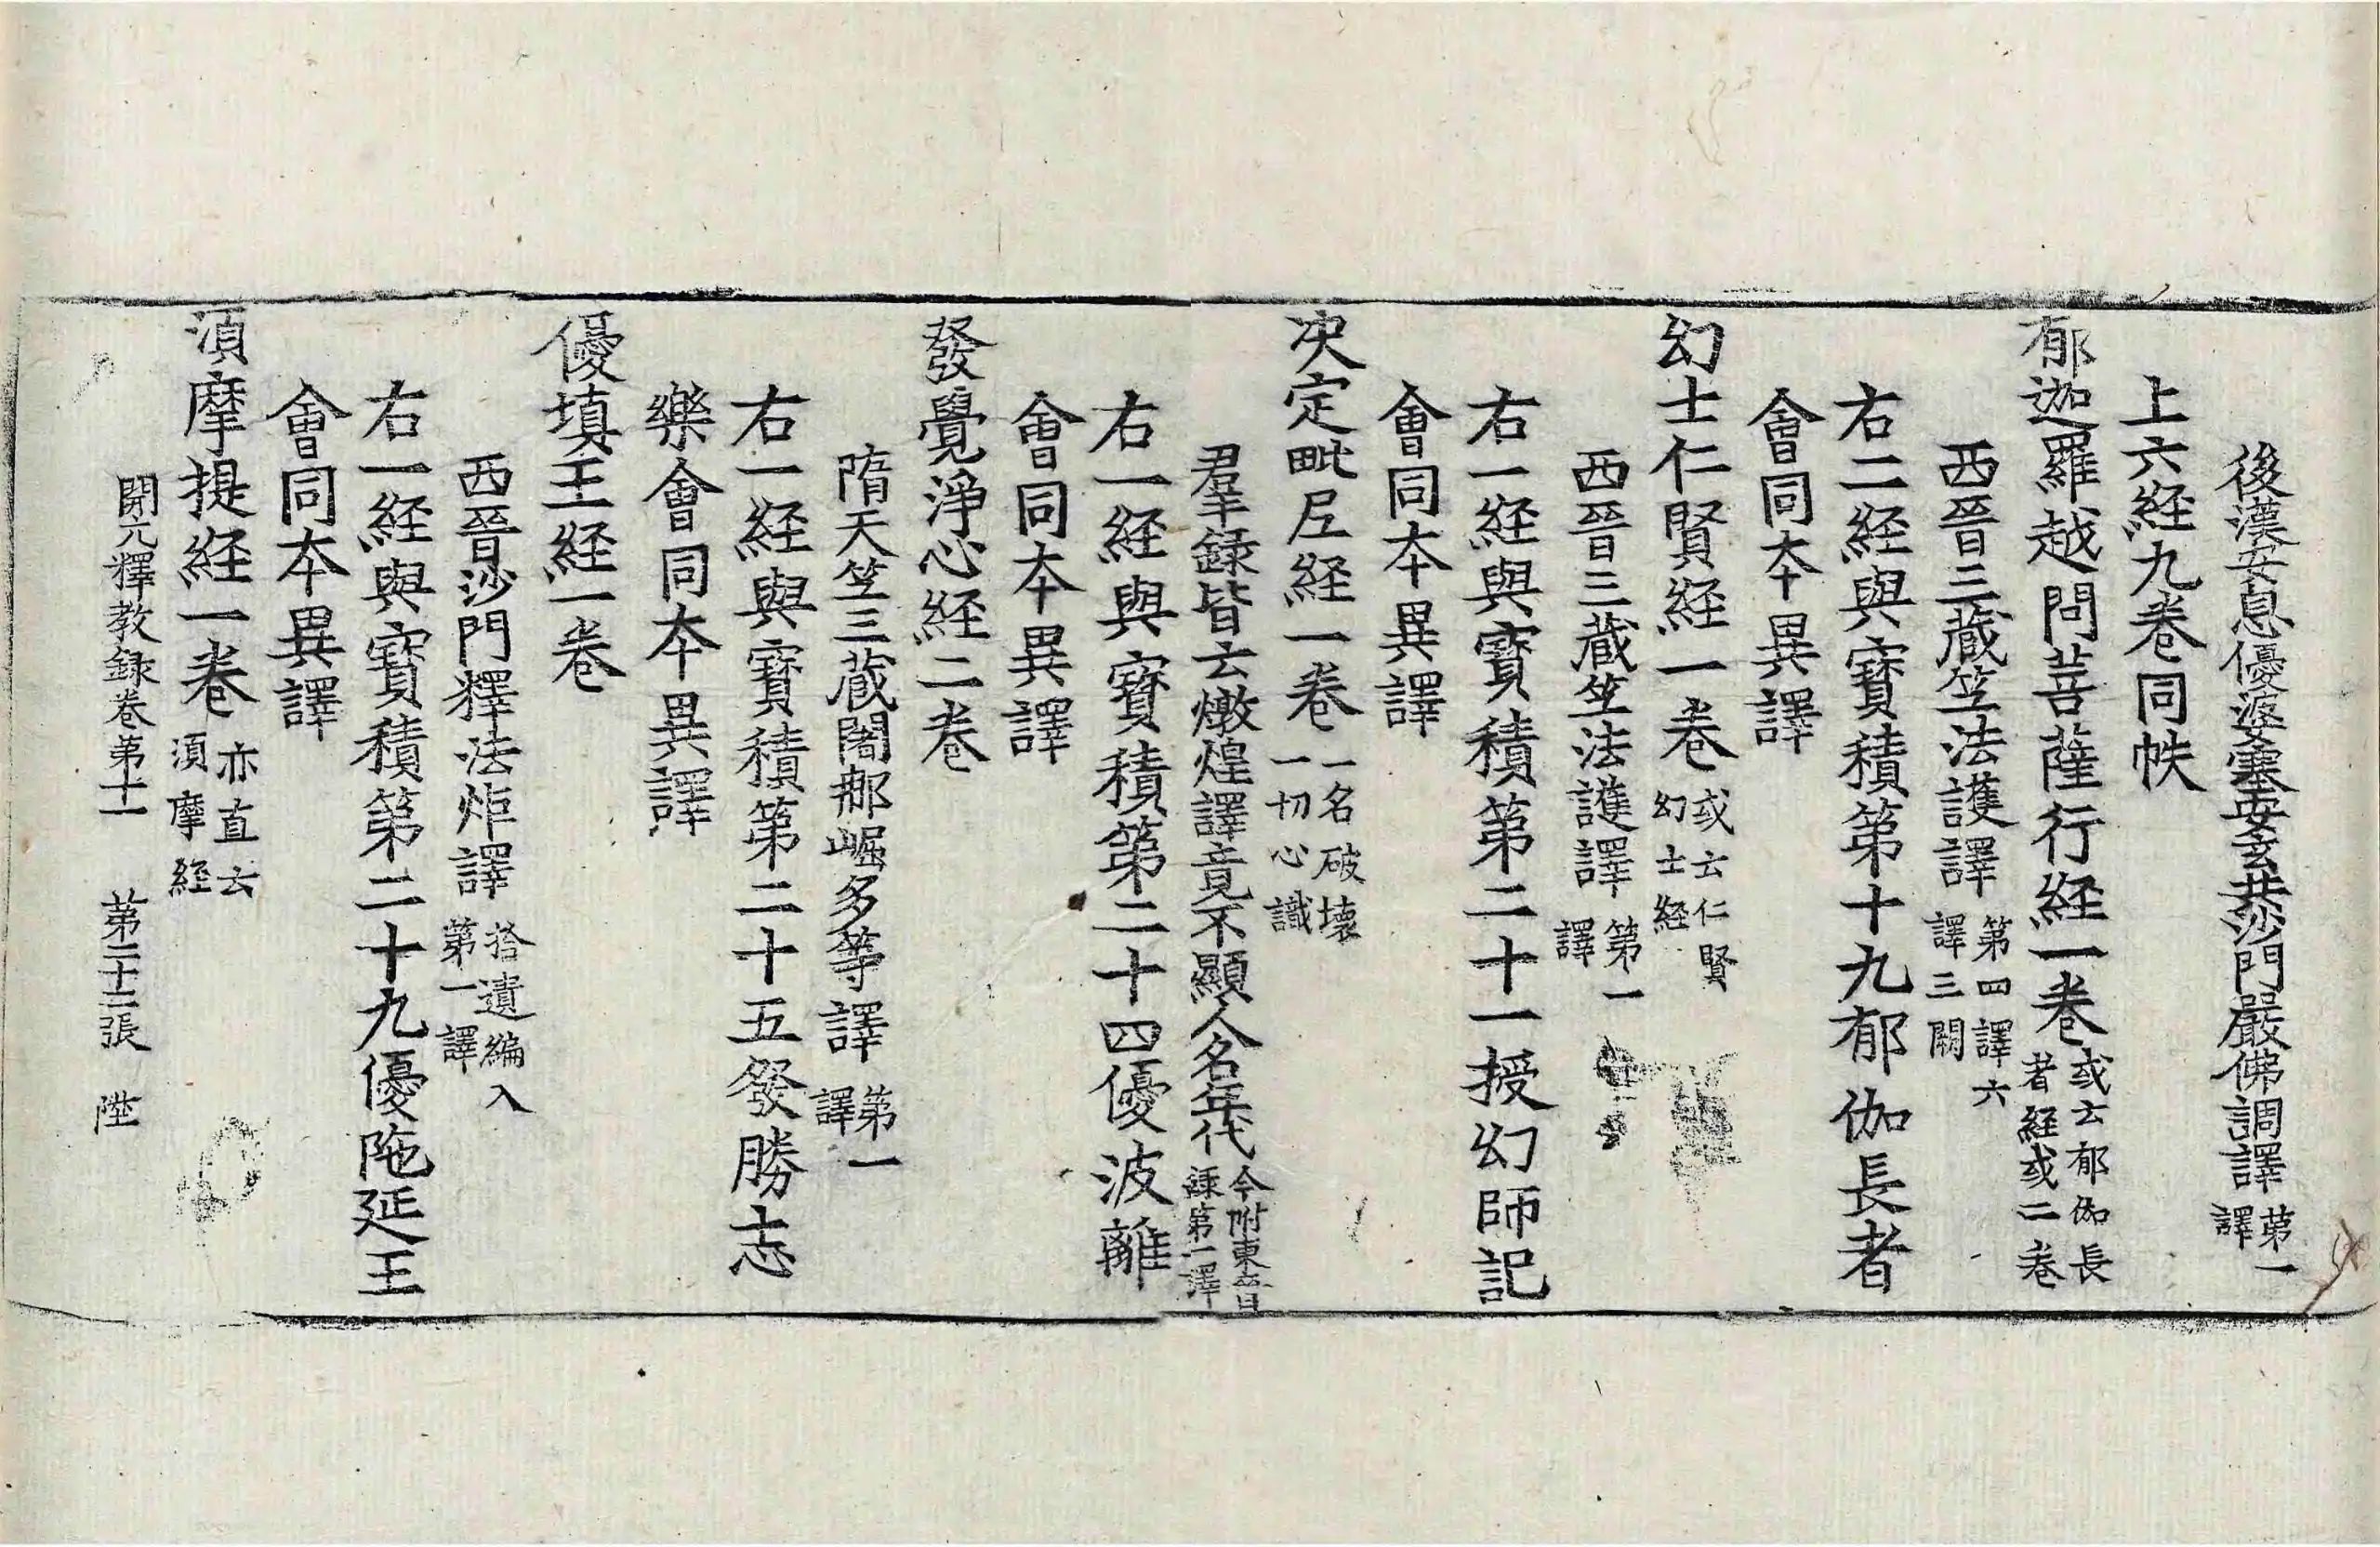 後漢安息優婆塞安玄共沙門嚴佛調譯第一譯
上六経九卷同帙
郁迦羅越問菩薩行経一卷或云郁伽長者経或二卷
西晉三藏竺法護譯第四譯六譯三闕
右二経與寶積第十九郁伽長者
會同本異譯
幻士仁賢経一卷或云仁賢幻士経
西晉三藏竺法護譯第一譯
右一経與寶積第二十一授幻師記
會同本異譯
决定毗尼経一卷一名破壞一切心識
羣録皆云燉煌譯竟不顯人名年代今附東晉録第一譯
右一経與寶積第二十四優波離
會同本異譯
發覺淨心経二卷
隋天竺三藏闍那崛多等譯第一譯
右一経與寶積第二十五發勝志
樂會同本異譯
優填王経一卷
西晉沙門釋法炬譯拾遺編入第一譯
右一経與寶積第二十九優陁延王
會同本異譯
須摩提経一卷亦直云須摩経
開元釋教録卷第十一　第二十二張　陞